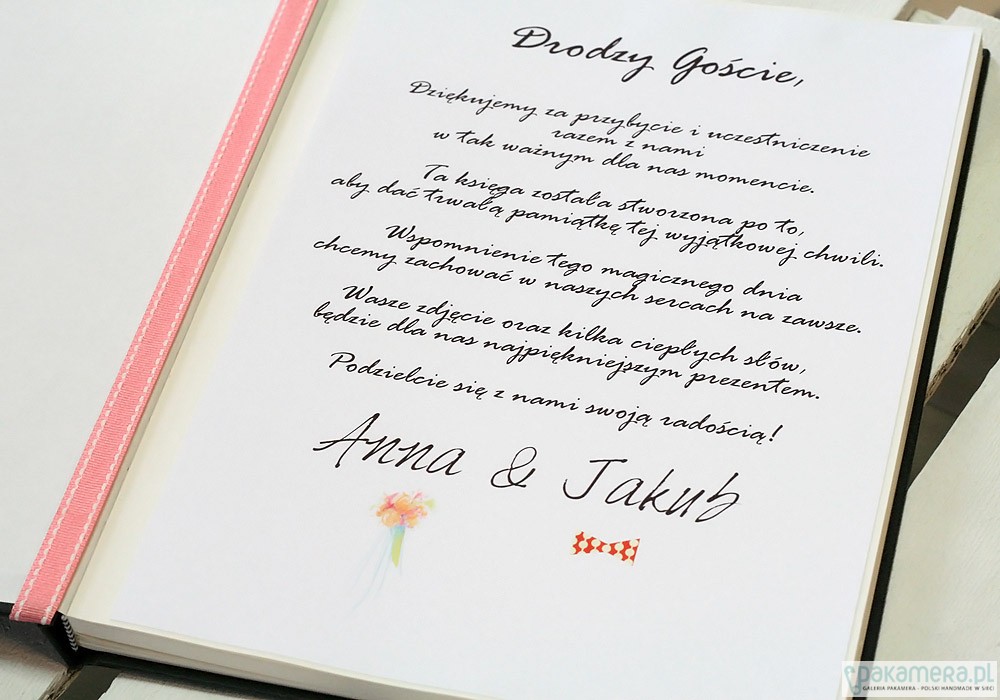 Drodzy Goście,
Dziękujemy za przybycie i uczestniczenie
razem z nami
w tak ważnym dla nas momencie.
Ta księga została stworzona po to,
aby dać trwałą pamiątkę tej wyjątkowej chwili.
Wspomnienie tego magicznego dnia
chcemy zachować w naszych sercach na zawsze.
Wasze zdjęcie oraz kilka ciepłych słów,
będzie dla nas najpiękniejszym prezentem.
Podzielcie się z nami swoją radością!
Anna & Jakub
pakamera.pl
GALERIA PAKAMERA - POLSKI HANDMADE W SIECI